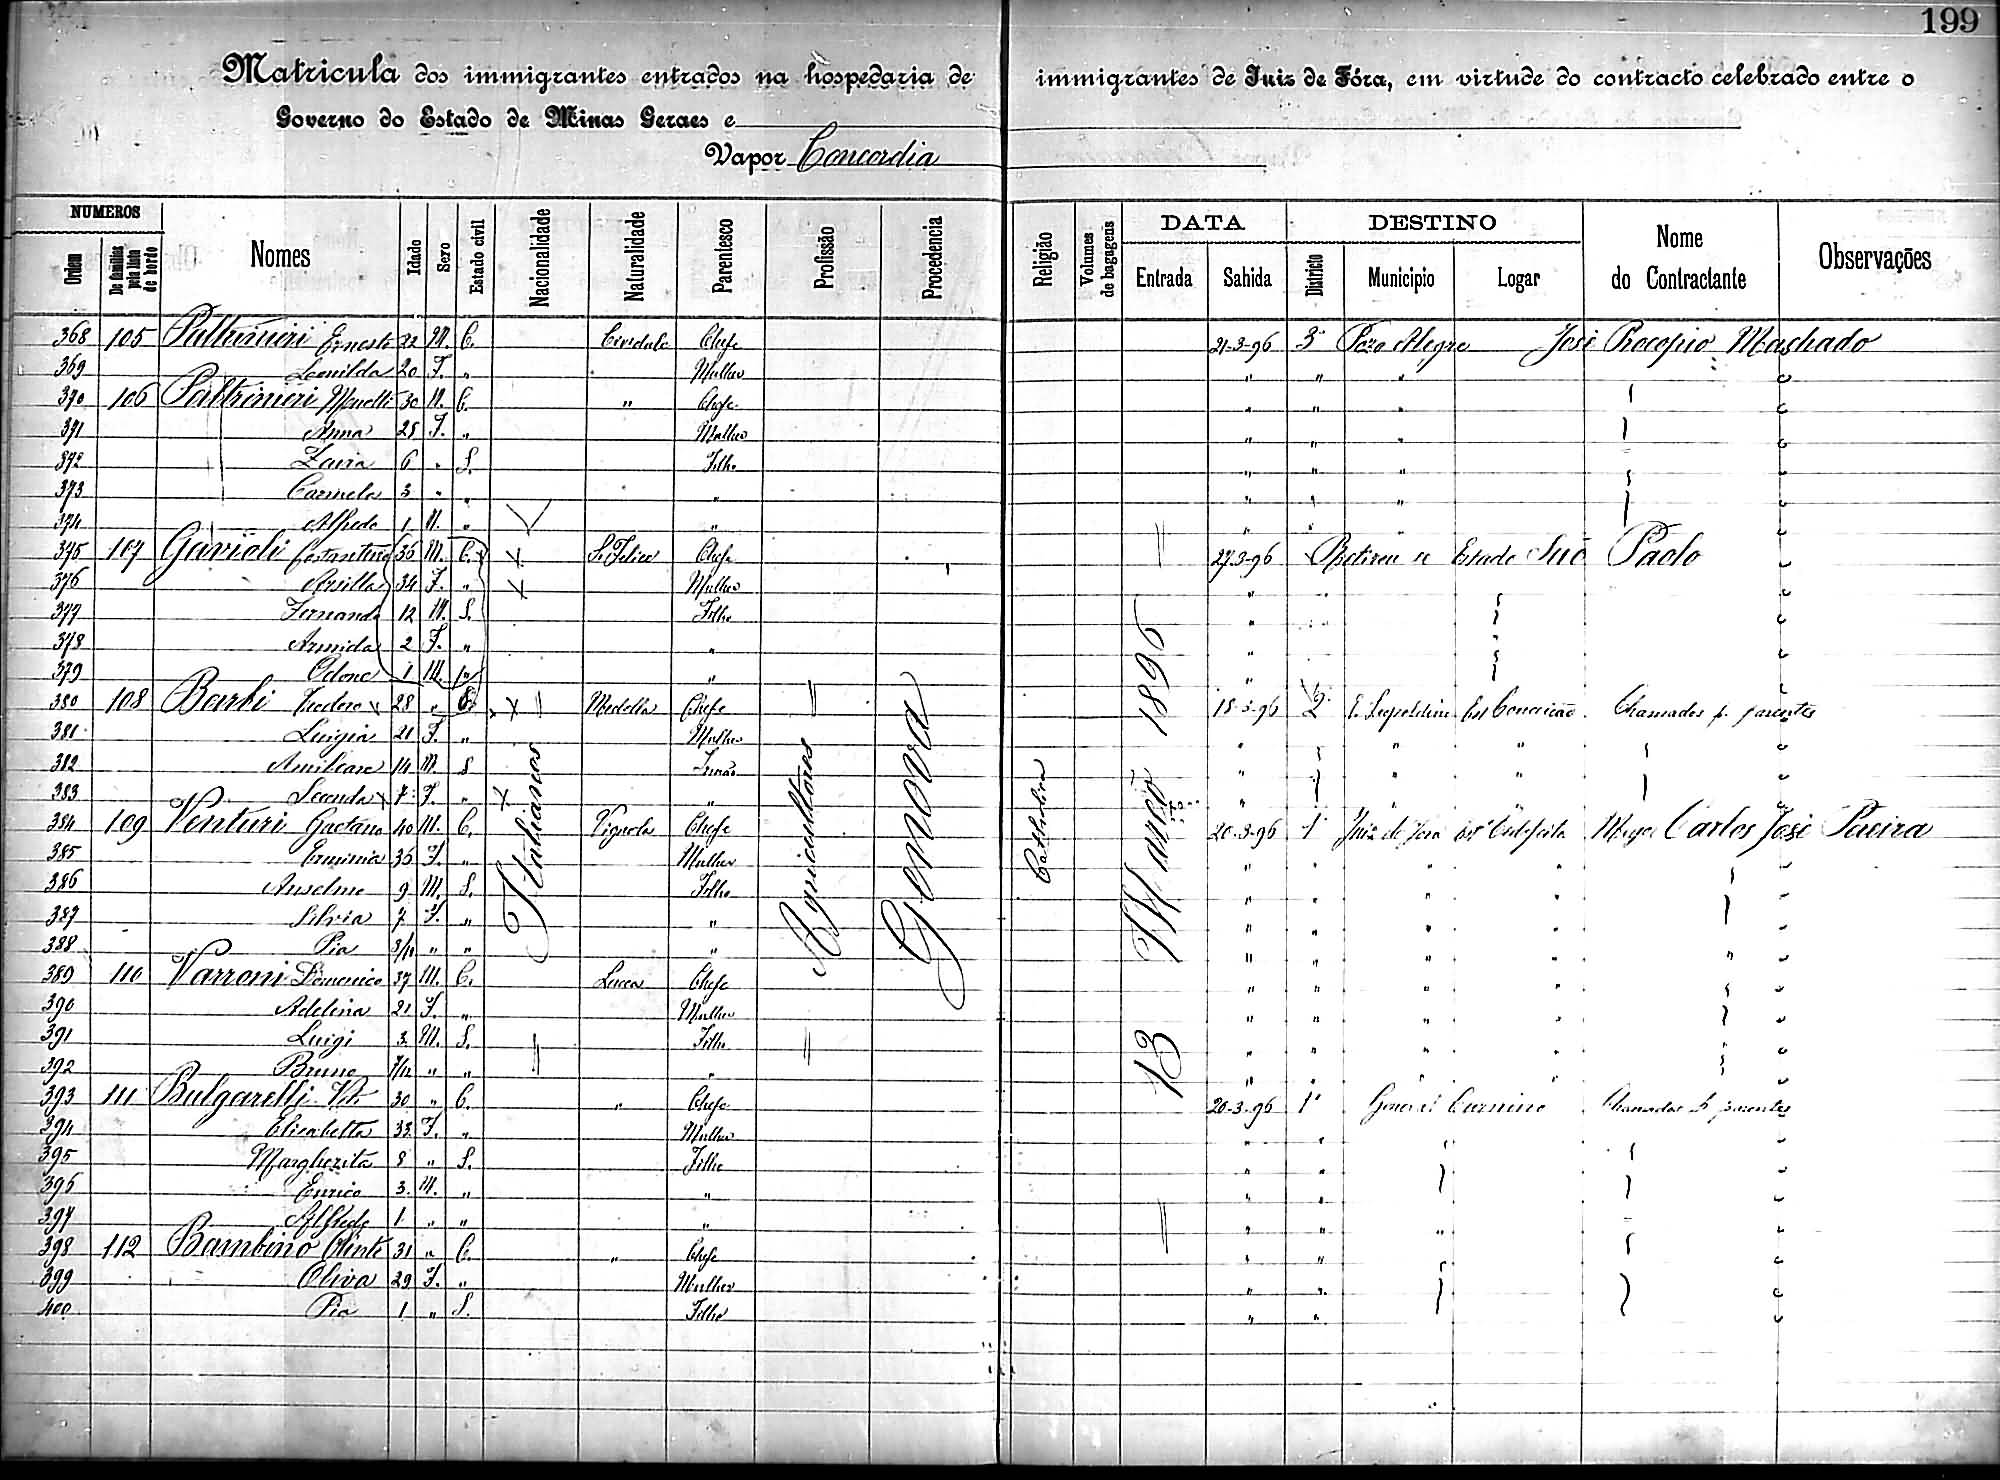 199
Matricula dos immigrantes entrados na hospedaria de immigrantes de Juiz de Fóra, em virtude do contracto celebrado entre o
Governo do Estado de Minas Geraes e
Vapor Concordia
NUMEROS DATA DESTINO
Ordem De familias pela lista de bordo Nomes Idade Sexo Estado civil Nacionalidade Naturalidade Parentesco Profissão Procedencia Religião Volumes de bagagens Entrada Sahida Districto Municipio Logar Nome do Contractante Observações
368 105 Paltrinieri Ernesto 22 M. C. Cividale Chefe 21-3-96 3º Pozo Alegre José Procopio Machado
369 Leonilda 20 F. " Mulher " " "
370 106 Paltrinieri 30 M. C. " Chefe " " "
371 Anna 28 F. " Mulher " " "
372 Zaira 6 " S. Filho " " "
373 Carmela 3 " " " " " "
374 Alfredo 1 M. " " " " "
375 107 Gavioli Costantino 36 M. C. S. Felice Chefe 27-3-96 Estado São Paolo
376 Ersilla 34 F. " Mulher "
377 Fernando 12 M. S. Filho "
378 Armida 2 F. " " "
379 Odone 1 M. " " "
380 108 Barbi Teodoro 28 " C. Medolla Chefe 18-3-96 2º E. Leopoldina Est Conceicão Chamados p. parentes
381 Luigia 21 F. " Mulher " " "
382 Amilcare 14 M. S Irmão " " "
383 Secunda 7 F. " " "
384 109 Venturi Gaetano 40 M. C. Vignola Chefe 20-3-96 1º Juiz de Fora Major Carlos José Pereira
385 Erminia 36 F. " Mulher " " " "
386 Anselmo 9 M. S. Filho " " " "
387 Silvia 7 F. " " " " " "
388 Pia 8/10 " " " " " " "
389 110 Varroni Domenico 37 M. C. Lucca Chefe " " " "
390 Adelina 21 F. " Mulher " " " "
391 Luigi 3 M. S. Filho " " " "
392 Bruno 7/12 " " " " " " "
393 111 Bulgarelli 30 " C. " Chefe 20-3-96 1º General Carneiro Chamados p. parentes
394 Elisabetta 33 F. " Mulher " "
395 Margherita 8 " S. Filho " "
396 Enrico 3 M. " " " "
397 Alfredo 1 " " " " "
398 112 Bambino Olinto 31 " C. " Chefe " "
399 Oliva 29 F. " Mulher " "
400 Pia 1 " S. Filho " "
Italianos
Agricultores
Genova
Catholica
13 Março 1896